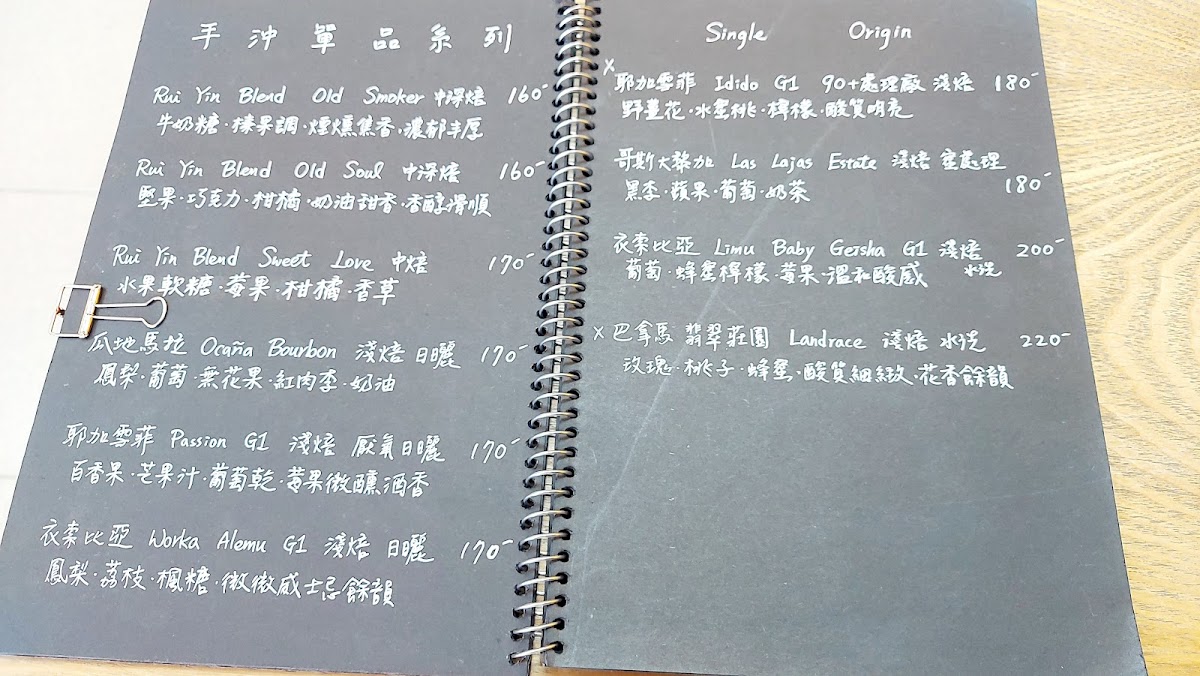 手沖單品系列
Rui Yin Blend Old Smoker 中深焙 160-
牛奶糖·榛果調·煙燻焦香·濃郁丰厚
Rui Yin Blend Old Soul 中深焙 160-
堅果·巧克力·柑橘·奶油甜香·香醇滑順
Rui Yin Blend Sweet Love 中焙 170-
水果軟糖·莓果·柑橘·香草
瓜地馬拉 Ocaña Bourbon 淺焙 日曬 170-
鳳梨·葡萄·無花果·紅肉李·奶油
耶加雪菲 Passion G1 淺焙 厭氧日曬 170-
百香果·芒果汁·葡萄乾·莓果微醺酒香
衣索比亞 Worka Alemu G1 淺焙 日曬 170-
鳳梨·荔枝·楓糖·微微威士忌餘韻
Single Origin
x 耶加雪菲 Idido G1 90+處理廠 淺焙 180-
野薑花·水蜜桃·檸檬·酸質明亮
哥斯大黎加 Las Lajas Estate 淺焙 蜜處理
黑李·蘋果·葡萄·奶茶 180-
衣索比亞 Limu Baby Geisha G1 淺焙 200-
葡萄·蜂蜜檸檬·莓果·溫和酸感 水洗
x 巴拿馬 翡翠莊園 Landrace 淺焙 水洗 220-
玫瑰·桃子·蜂蜜·酸質細緻·花香餘韻